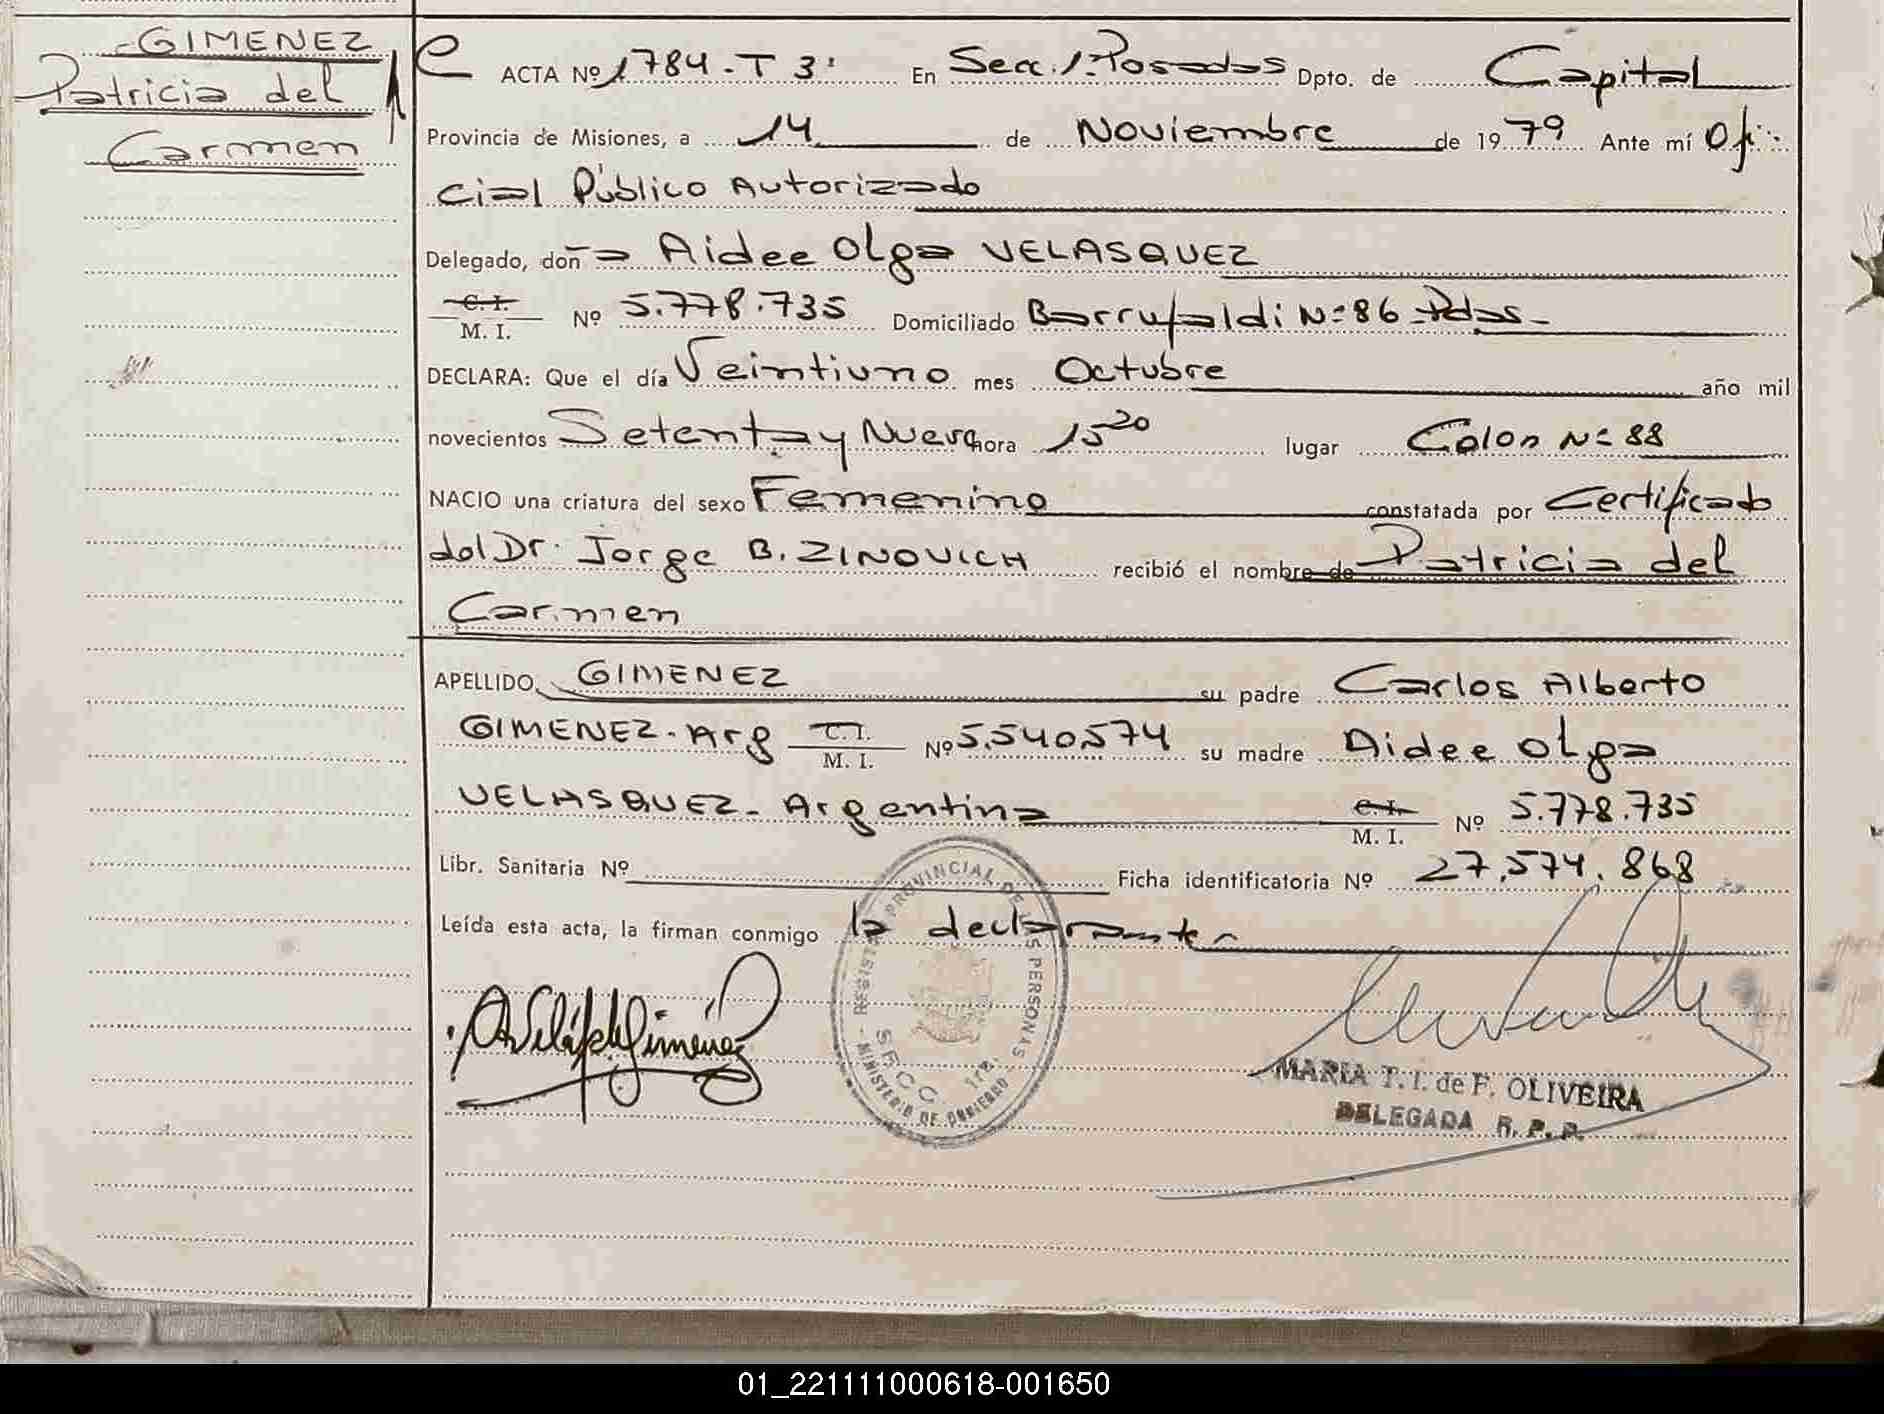 GIMENEZ
Patricia del
Carmen
ACTA Nº 1784-T 3º En Secc. 1ª Posadas Dpto. de Capital
Provincia de Misiones, a 14 de Noviembre de 1979 Ante mí Ofi-
cial Público Autorizado
Delegado, doña Aidee Olga VELASQUEZ
C. I.
M. I. Nº 5.778.735 Domiciliado Barrufaldi Nº 86-Pdas-
DECLARA: Que el día Veintiuno mes Octubre año mil
novecientos Setenta y Nueve hora 15²⁰ lugar Colon Nº 88
NACIO una criatura del sexo Femenino constatada por Certificado
del Dr. Jorge B. ZINOVICH recibió el nombre de Patricia del
Carmen
APELLIDO GIMENEZ su padre Carlos Alberto
GIMENEZ-Arg C. I.
M. I. Nº 5.540.574 su madre Aidee Olga
VELASQUEZ-Argentina C. I.
M. I. Nº 5.778.735
Libr. Sanitaria Nº Ficha identificatoria Nº 27.574.868
Leída esta acta, la firman conmigo la declarante
REGISTRO PROVINCIAL DE LAS PERSONAS
SECC. 1ra.
MINISTERIO DE GOBIERNO
MARIA T. I. de F. OLIVEIRA
DELEGADA R. P. P.
01_221111000618-001650